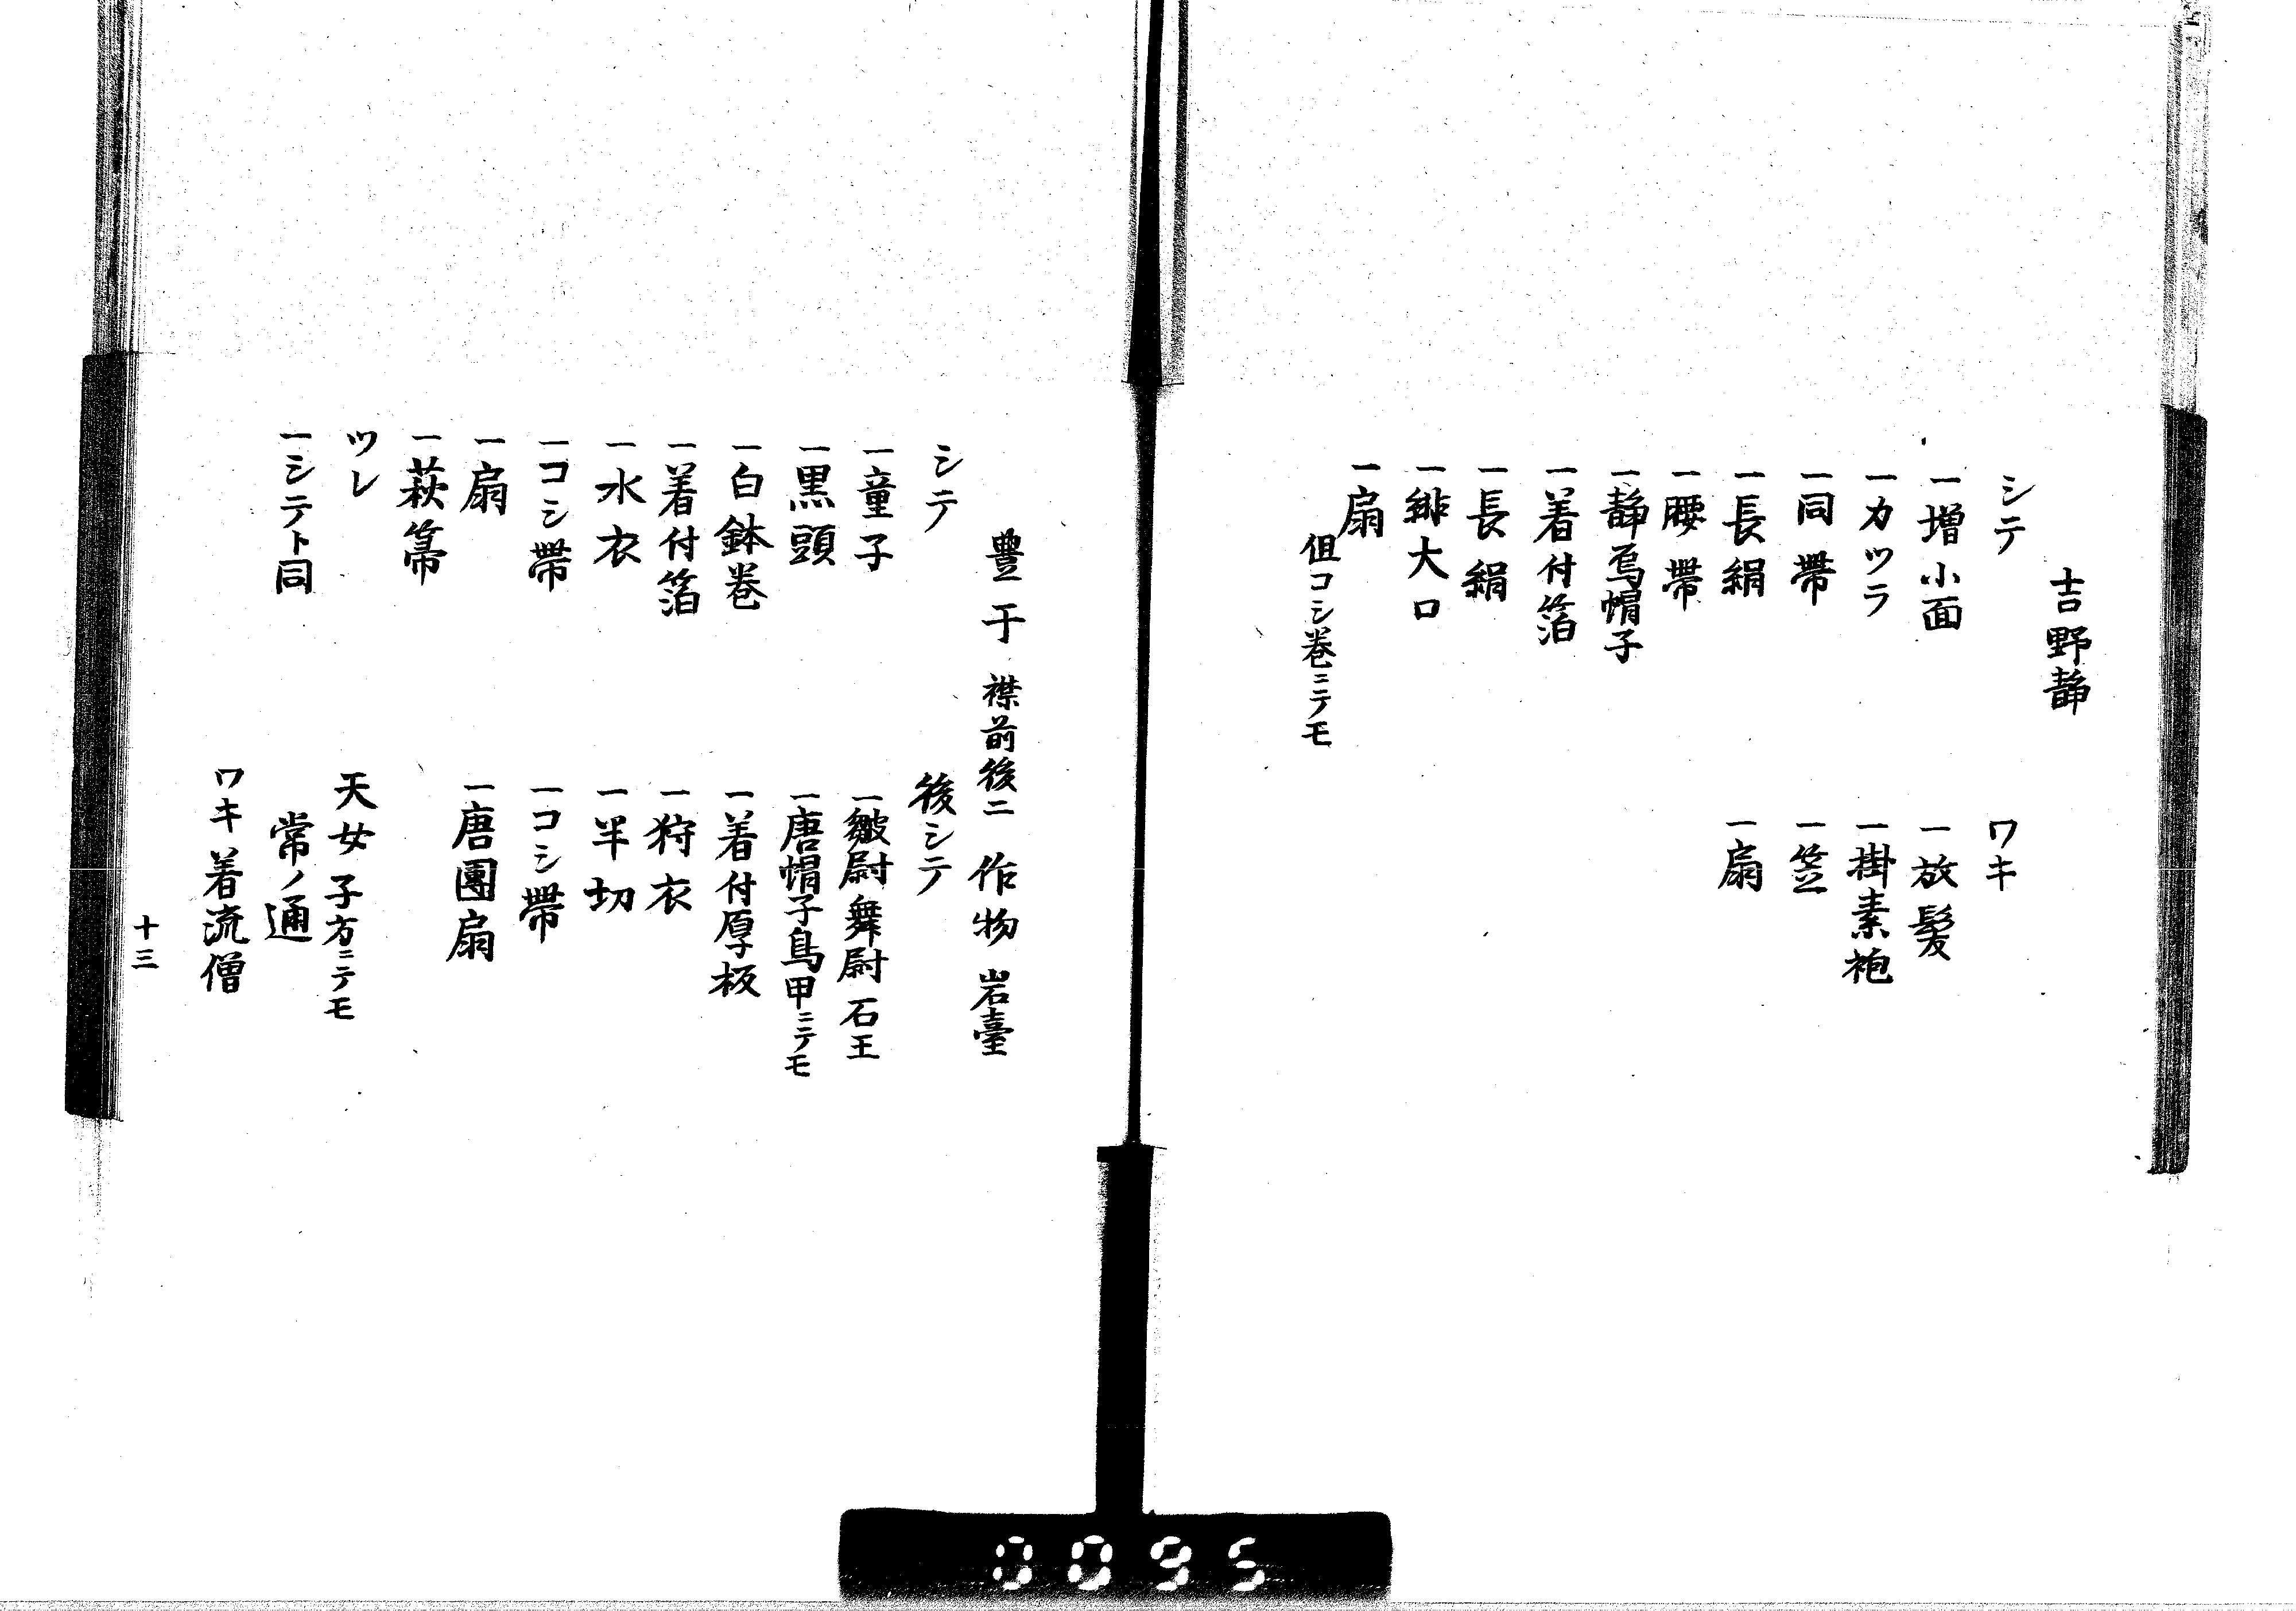 吉野静
シテ
一増小面
一カツラ
一同帯
一長絹
一腰帯
一静烏帽子
一着付箔
一長絹
一緋大口
一扇
但コシ巻ニテモ
ワキ
一放髪
一掛素袍
一笠
一扇
豊干 襟前後ニ 作物 岩臺
シテ
一童子
一黒頭
一白鉢巻
一着付箔
一水衣
一コシ帯
一扇
一萩箒
ツレ
一シテト同
後シテ
一皺尉舞尉石王
一唐帽子鳥甲ニテモ
一着付厚板
一狩衣
一半切
一コシ帯
一唐團扇
天女子方ニテモ
常ノ通
ワキ着流僧
十三
0095